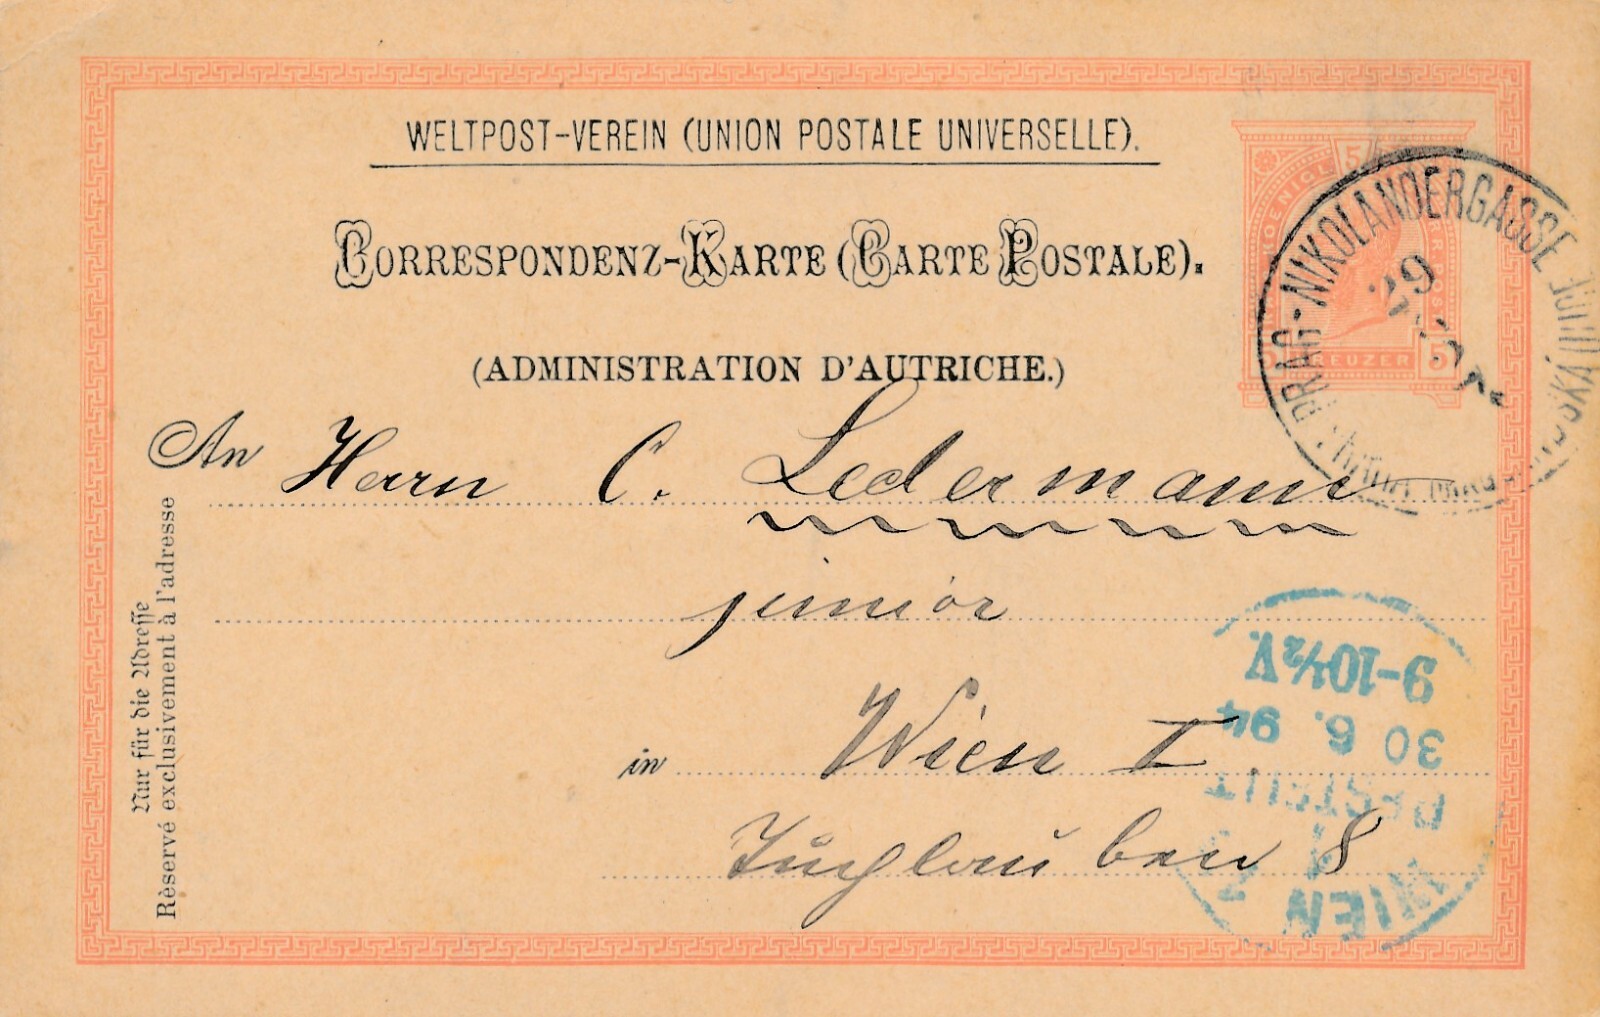 WELTPOST-VEREIN (UNION POSTALE UNIVERSELLE).
CORRESPONDENZ-KARTE (CARTE POSTALE).
(ADMINISTRATION D'AUTRICHE.)
5
KOENIGL
5 KREUZER 5
PRAG-NIKOLANDERGASSE
29
An Herrn C. Ledermann
junior
in Wien I
Tuchlauben 8
Nur für die Adresse
Réservé exclusivement à l'adresse
9-10½V.
30 6. 94
BESTELLT
WIEN